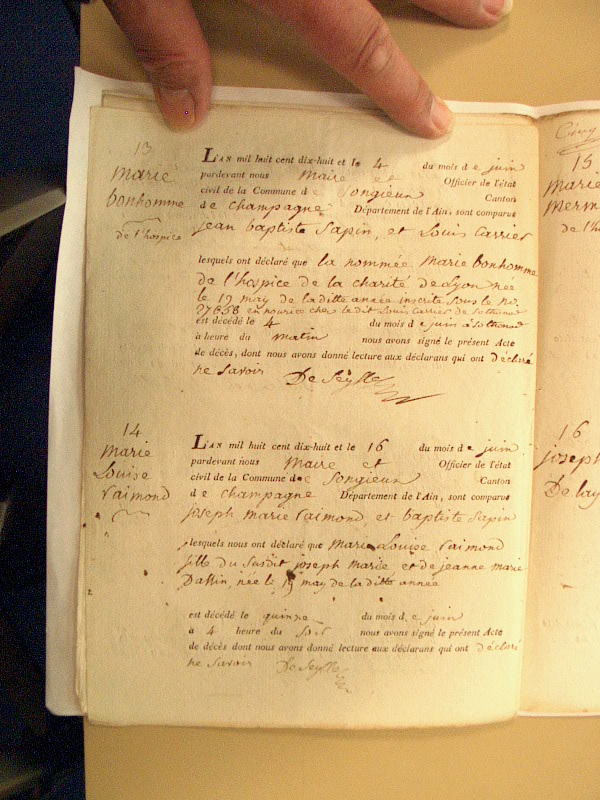 13
marie
bonhomme
de l'hospice
L'AN mil huit cent dix-huit et le 4 du mois de juin
pardevant nous Maire et Officier de l'état
civil de la Commune de Songieux Canton
de champagne Département de l'Ain, sont comparus
jean baptiste Sapin, et Louis Carrier
lesquels ont déclaré que la nommée Marie bonhomme
de l'hospice de la charité de Lyon née
le 19 may de la ditte année inscrite sous le no.
27658 en nourice chez le dit Louis Carrier de Sothonod
est décédé le 4 du mois de juin à Sothonod
à heure du matin nous avons signé le présent Acte
de décès, dont nous avons donné lecture aux déclarans qui ont déclaré
ne Savoir De Seyssel
14
Marie
Louise
raimond
L'AN mil huit cent dix-huit et le 16 du mois de juin
pardevant nous Maire et Officier de l'état
civil de la Commune de Songieux Canton
de champagne Département de l'Ain, sont comparus
joseph marie raimond, et baptiste Sapin
lesquels nous ont déclaré que Marie Louise raimond
fille du Susdit joseph Marie et de jeanne marie
née le 19 may de la ditte année
est décédé le quinze du mois de juin
à 4 heure du soir nous avons signé le présent Acte
de décès dont nous avons donné lecture aux déclarans qui ont déclaré
ne Savoir De Seyssel
15
Marie
16
joseph